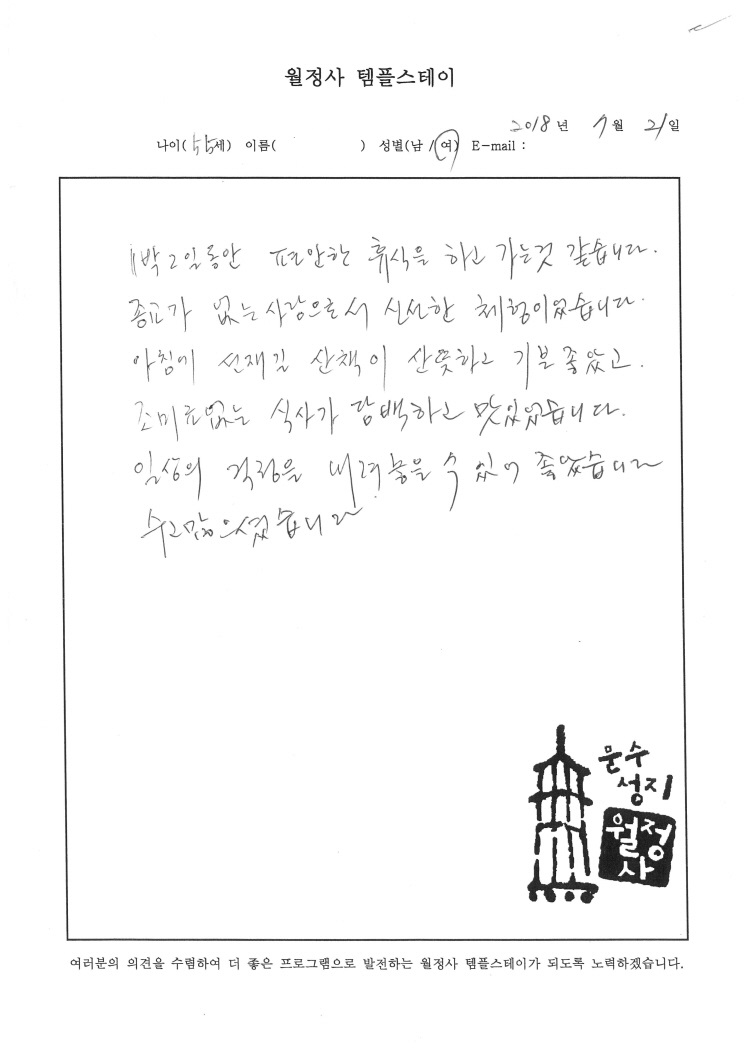 월정사 템플스테이
2018년 9월 21일
나이(55세) 이름( ) 성별(남/여) E-mail :
1박2일동안 편안한 휴식을 하고 가는것 같습니다.
종교가 없는사람으로서 신선한 체험이었습니다.
아침에 선재길 산책이 산뜻하고 기분좋았고.
조미료없는 식사가 담백하고 맛있었습니다.
일상의 걱정을 내려놓을 수 있어 좋았습니다
수고많으셨습니다
문수
성지
월정
사
여러분의 의견을 수렴하여 더 좋은 프로그램으로 발전하는 월정사 템플스테이가 되도록 노력하겠습니다.